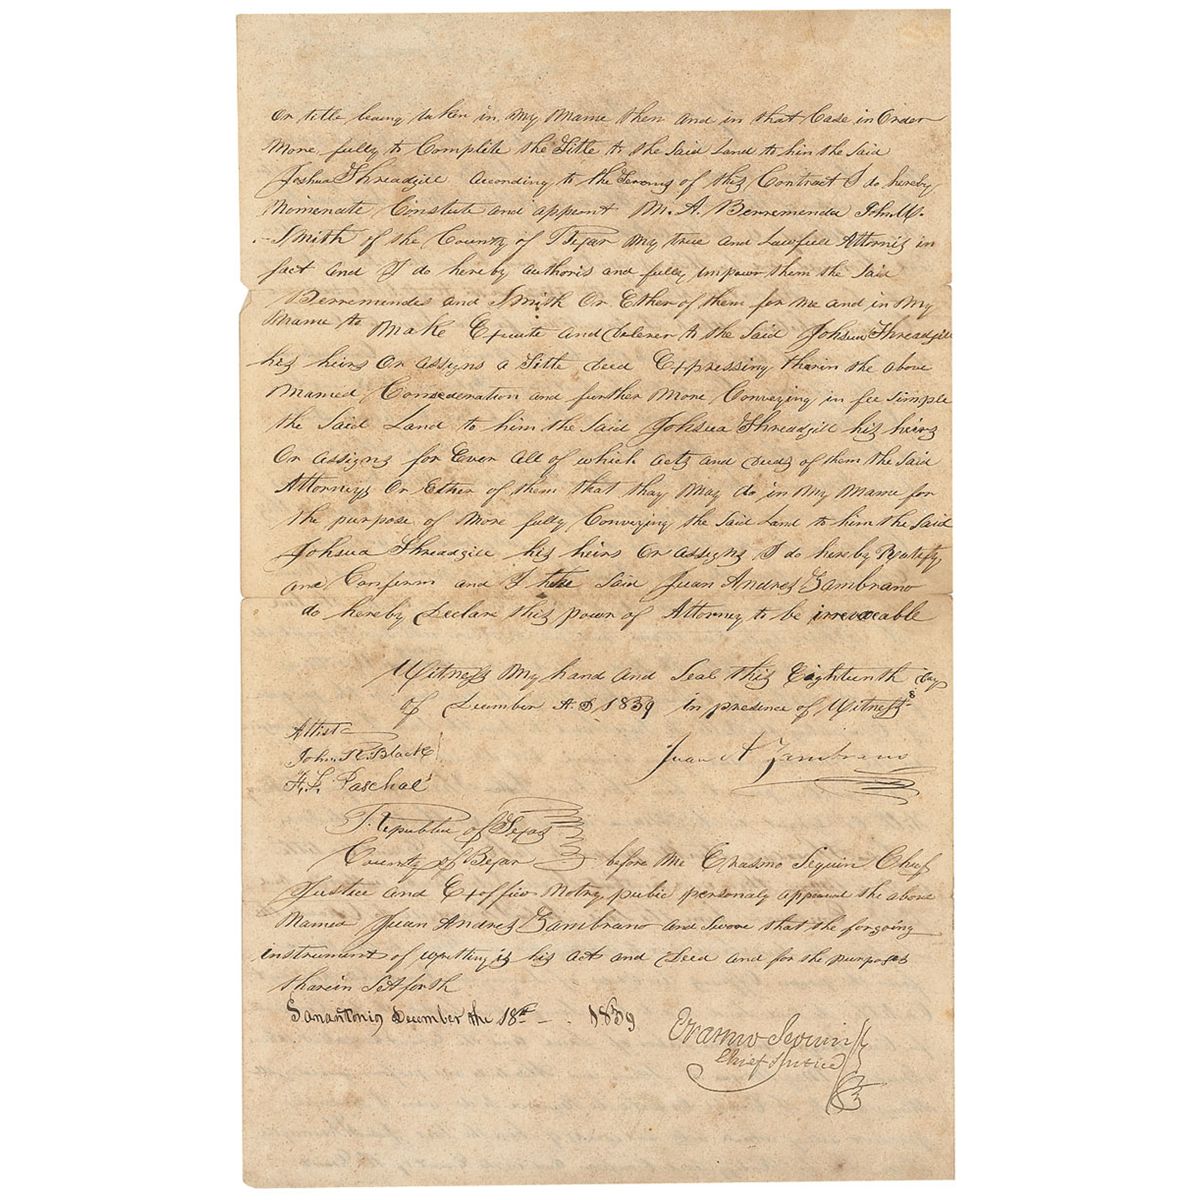 Or title being taken in my Name then and in that Case in Order
More fully to Complete the Title to the Said Land to him the Said
Joshua Threadgill according to the Terms of this Contract I do hereby
Nomenate Constute and appont M. A. Berremenda John W.
Smith of the County of Bejar my true and Lawfull Attornis in
fact and I do hereby authoris and fully impowr them the Said
Berremendes and Smith Or Ether of them for me and in My
Name to Make Exicute and Delever to the Said Johsua Threadgill
his heirs Or assigns a Title Deed Expressing tharin the above
Named Consederation and further More Conveying in fee Simple
the Said Land to him the Said Johsua Threadgill his heirs
Or assigns for Ever all of which acts and Deeds of them the Said
Attorneys Or Ether of them that thay May do in My Name for
the purpose of More fully Conveying the Said Land to him the Said
Johsua Threadgill his heirs Or assigns I do hereby Ratefy
and Confirm and I the Said Juan Andres Zambrano
do hereby Declare this powr of Attorney to be irrevocable
Witness My hand and Seal this Eighteenth Day
of December A.D 1839 in presence of Witnesss
Attist
John R. Black
F. L. Paschal
Juan A Zambrano
Republic of Texas
County of Bejar before Me Erasmo Seguin Chief
Justice and Exoffico Notry pubic personaly appeared the above
Named Juan Andres Zambrano and Swore that the forgoing
instrument of wretting is his act and Deed and for the purposes
tharein Set forth
Sanantonio December the 18th 1839
Erasmo Seguin
Chief Justice